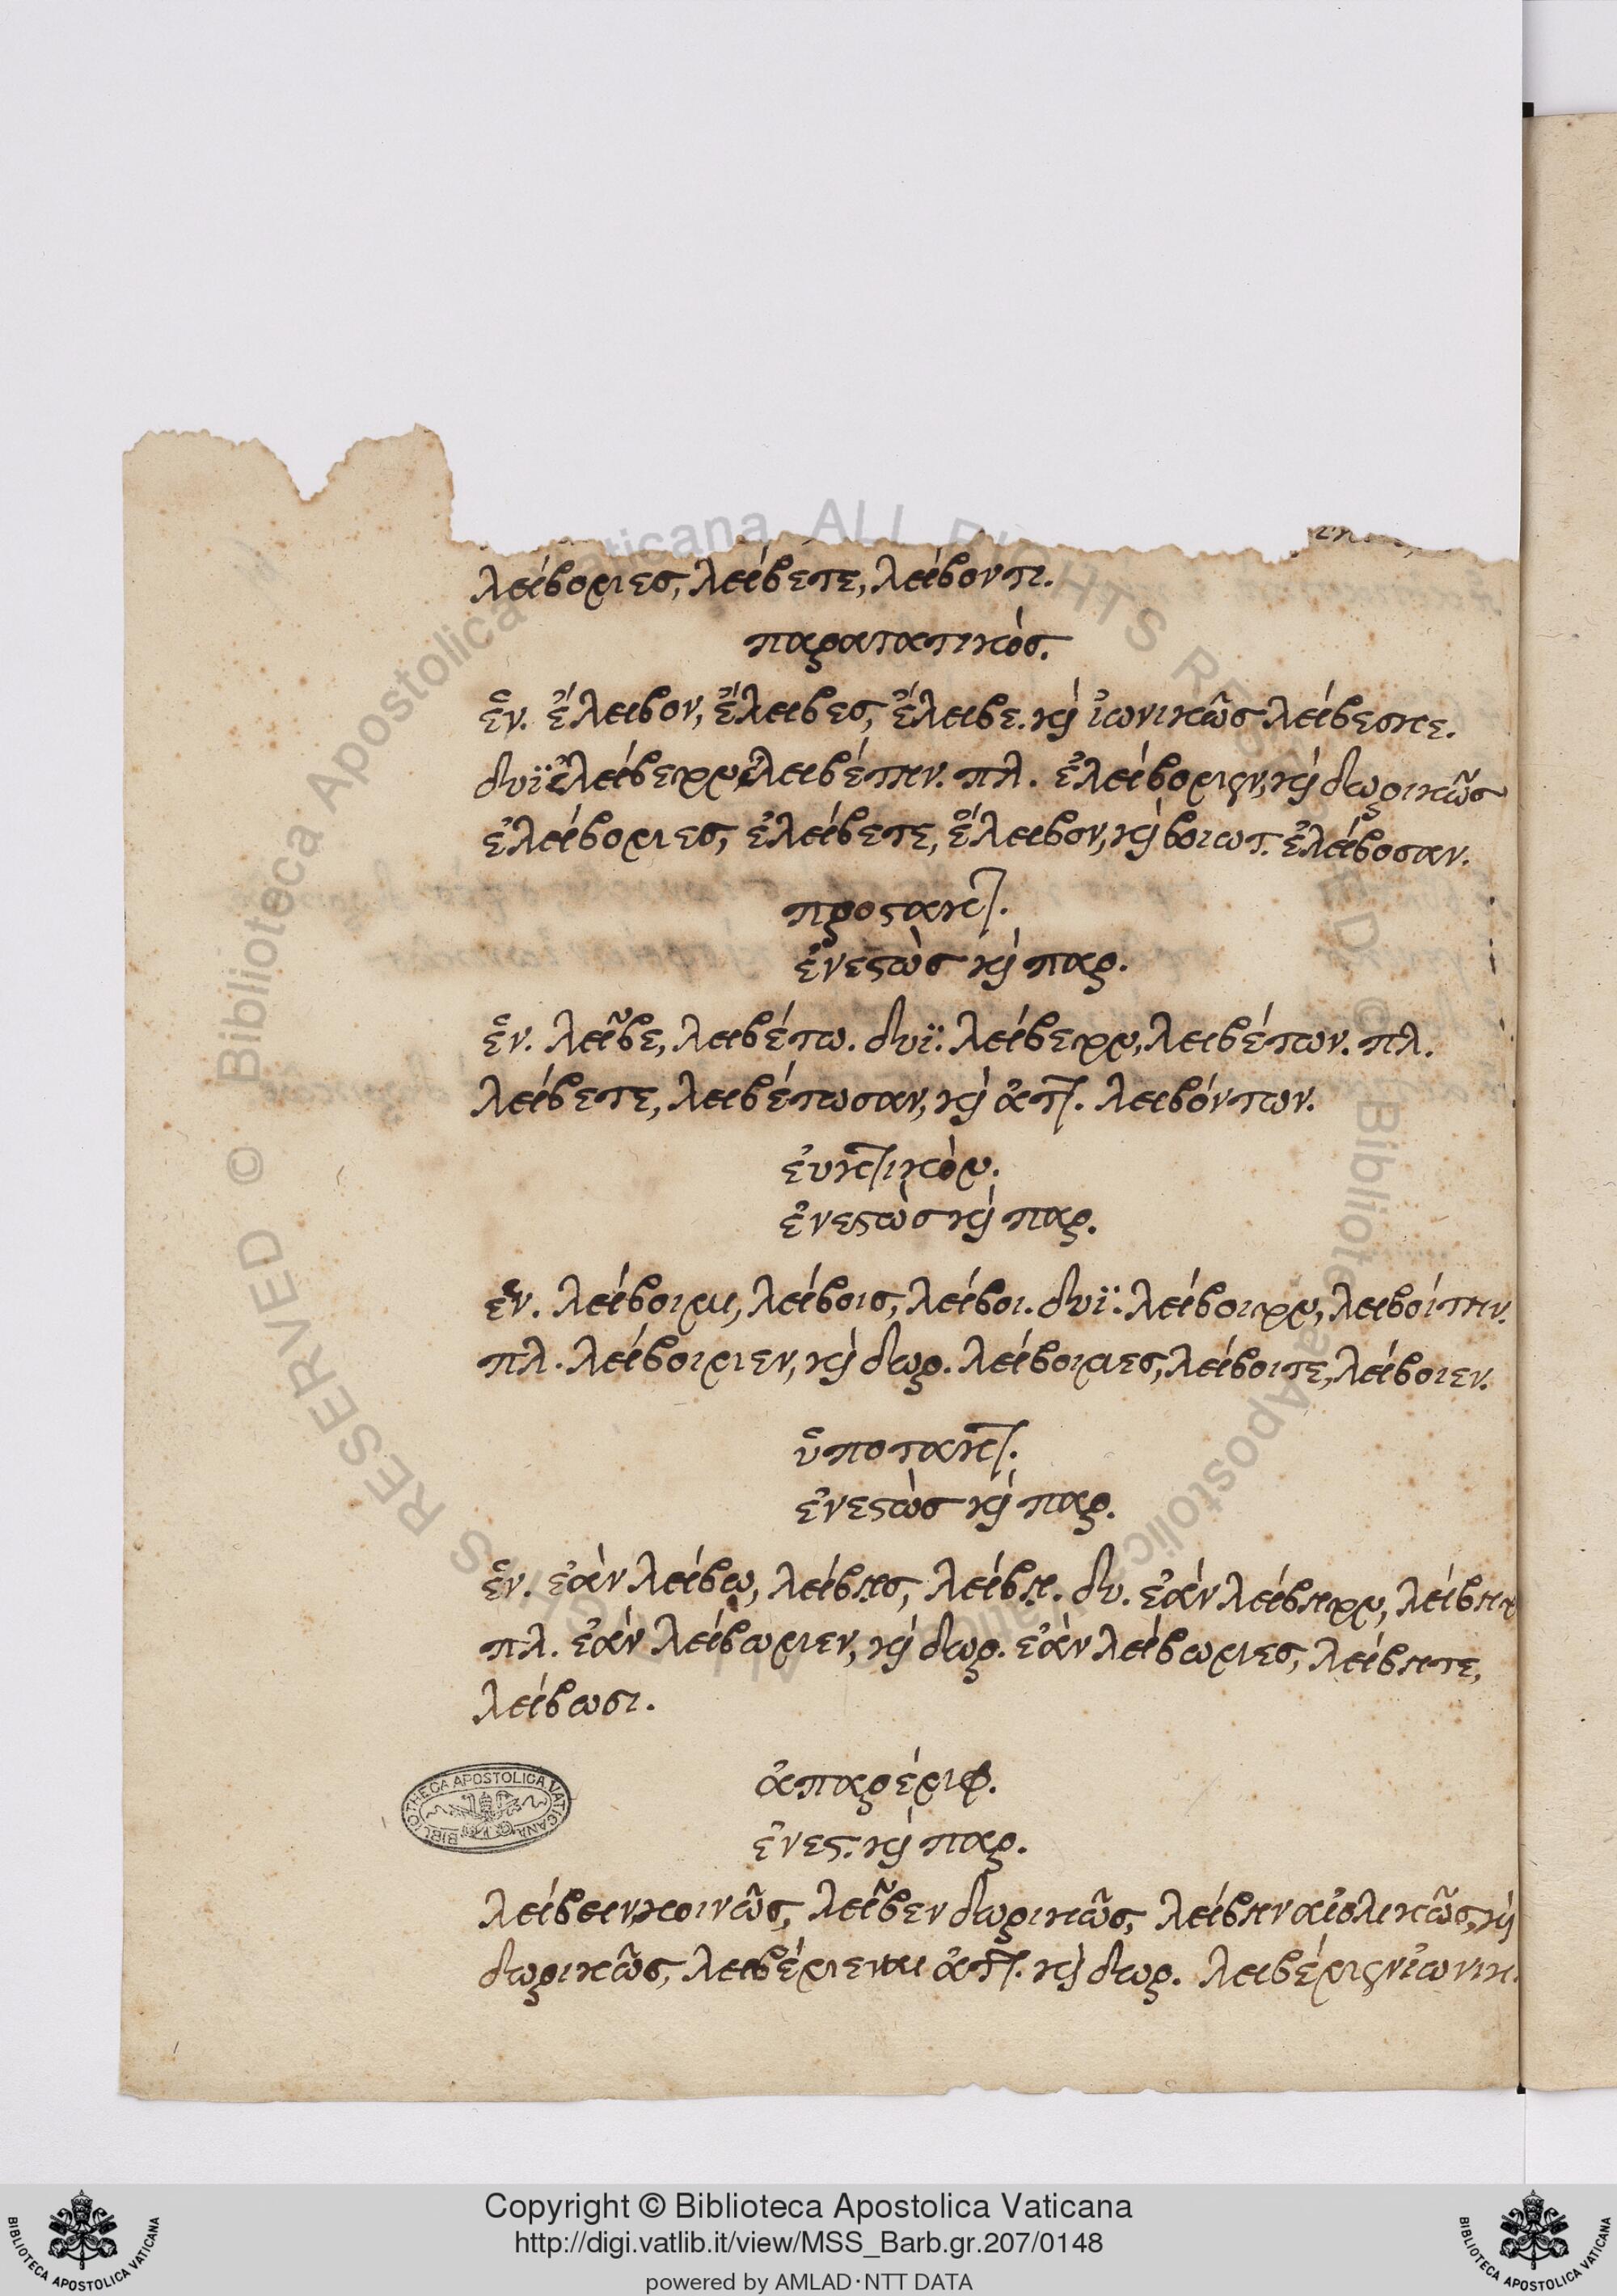 λείβομες, λείβετε, λείβοντι.
παρατατικὸς.
ἓν. ἔλειβον, ἔλειβες, ἔλειβε. κὶ ἰωνικῶς λείβεσκε.
δυϊ ἐλείβετον, ἐλειβέτην. πλ. ἐλείβομεν, κὶ δωρικῶς
ἐλείβομες, ἐλείβετε, ἔλειβον, κὶ βοιωτ. ἐλείβοσαν.
προςακτ.
ἐνεςὼς κὶ παρ.
ἓν. λεῖβε, λειβέτω. δυϊ. λείβετον, λειβέτων. πλ.
λείβετε, λειβέτωσαν, κὶ ἀττ. λειβόντων.
ἐυκτικὸν.
ἐνεςὼς κὶ παρ.
ἓν. λείβοιμι, λείβοις, λείβοι. δυϊ. λείβοιτον, λειβοίτην.
πλ. λείβοιμεν, κὶ δωρ. λείβοιμες, λείβοιτε, λείβοιεν.
ὑποτακτ.
ἐνεςὼς κὶ παρ.
ἓν. ἐὰν λείβω, λείβῃς, λείβῃ. δυ. ἐὰν λείβητον, λείβητ
πλ. ἐὰν λείβωμεν, κὶ δωρ. ἐὰν λείβωμες, λείβητε,
λείβωσι.
ἀπαρέμφ.
ἐνες. κὶ παρ.
λείβειν, κοινῶς, λεῖβεν δωρικῶς, λείβην αἰολικῶς, κὶ
δωρικῶς, λειβέμεναι ἀττ. κὶ δωρ. λειβέμεν ἰωνικ.
BIBLIOTHECA APOSTOLICA VATICANA
© Biblioteca Apostolica Vaticana ALL RIGHTS RESERVED © Biblioteca Apostolica Vaticana ALL RIGHTS RESERVED
BIBLIOTECA APOSTOLICA VATICANA
Copyright © Biblioteca Apostolica Vaticana
http://digi.vatlib.it/view/MSS_Barb.gr.207/0148
powered by AMLAD·NTT DATA
BIBLIOTECA APOSTOLICA VATICANA